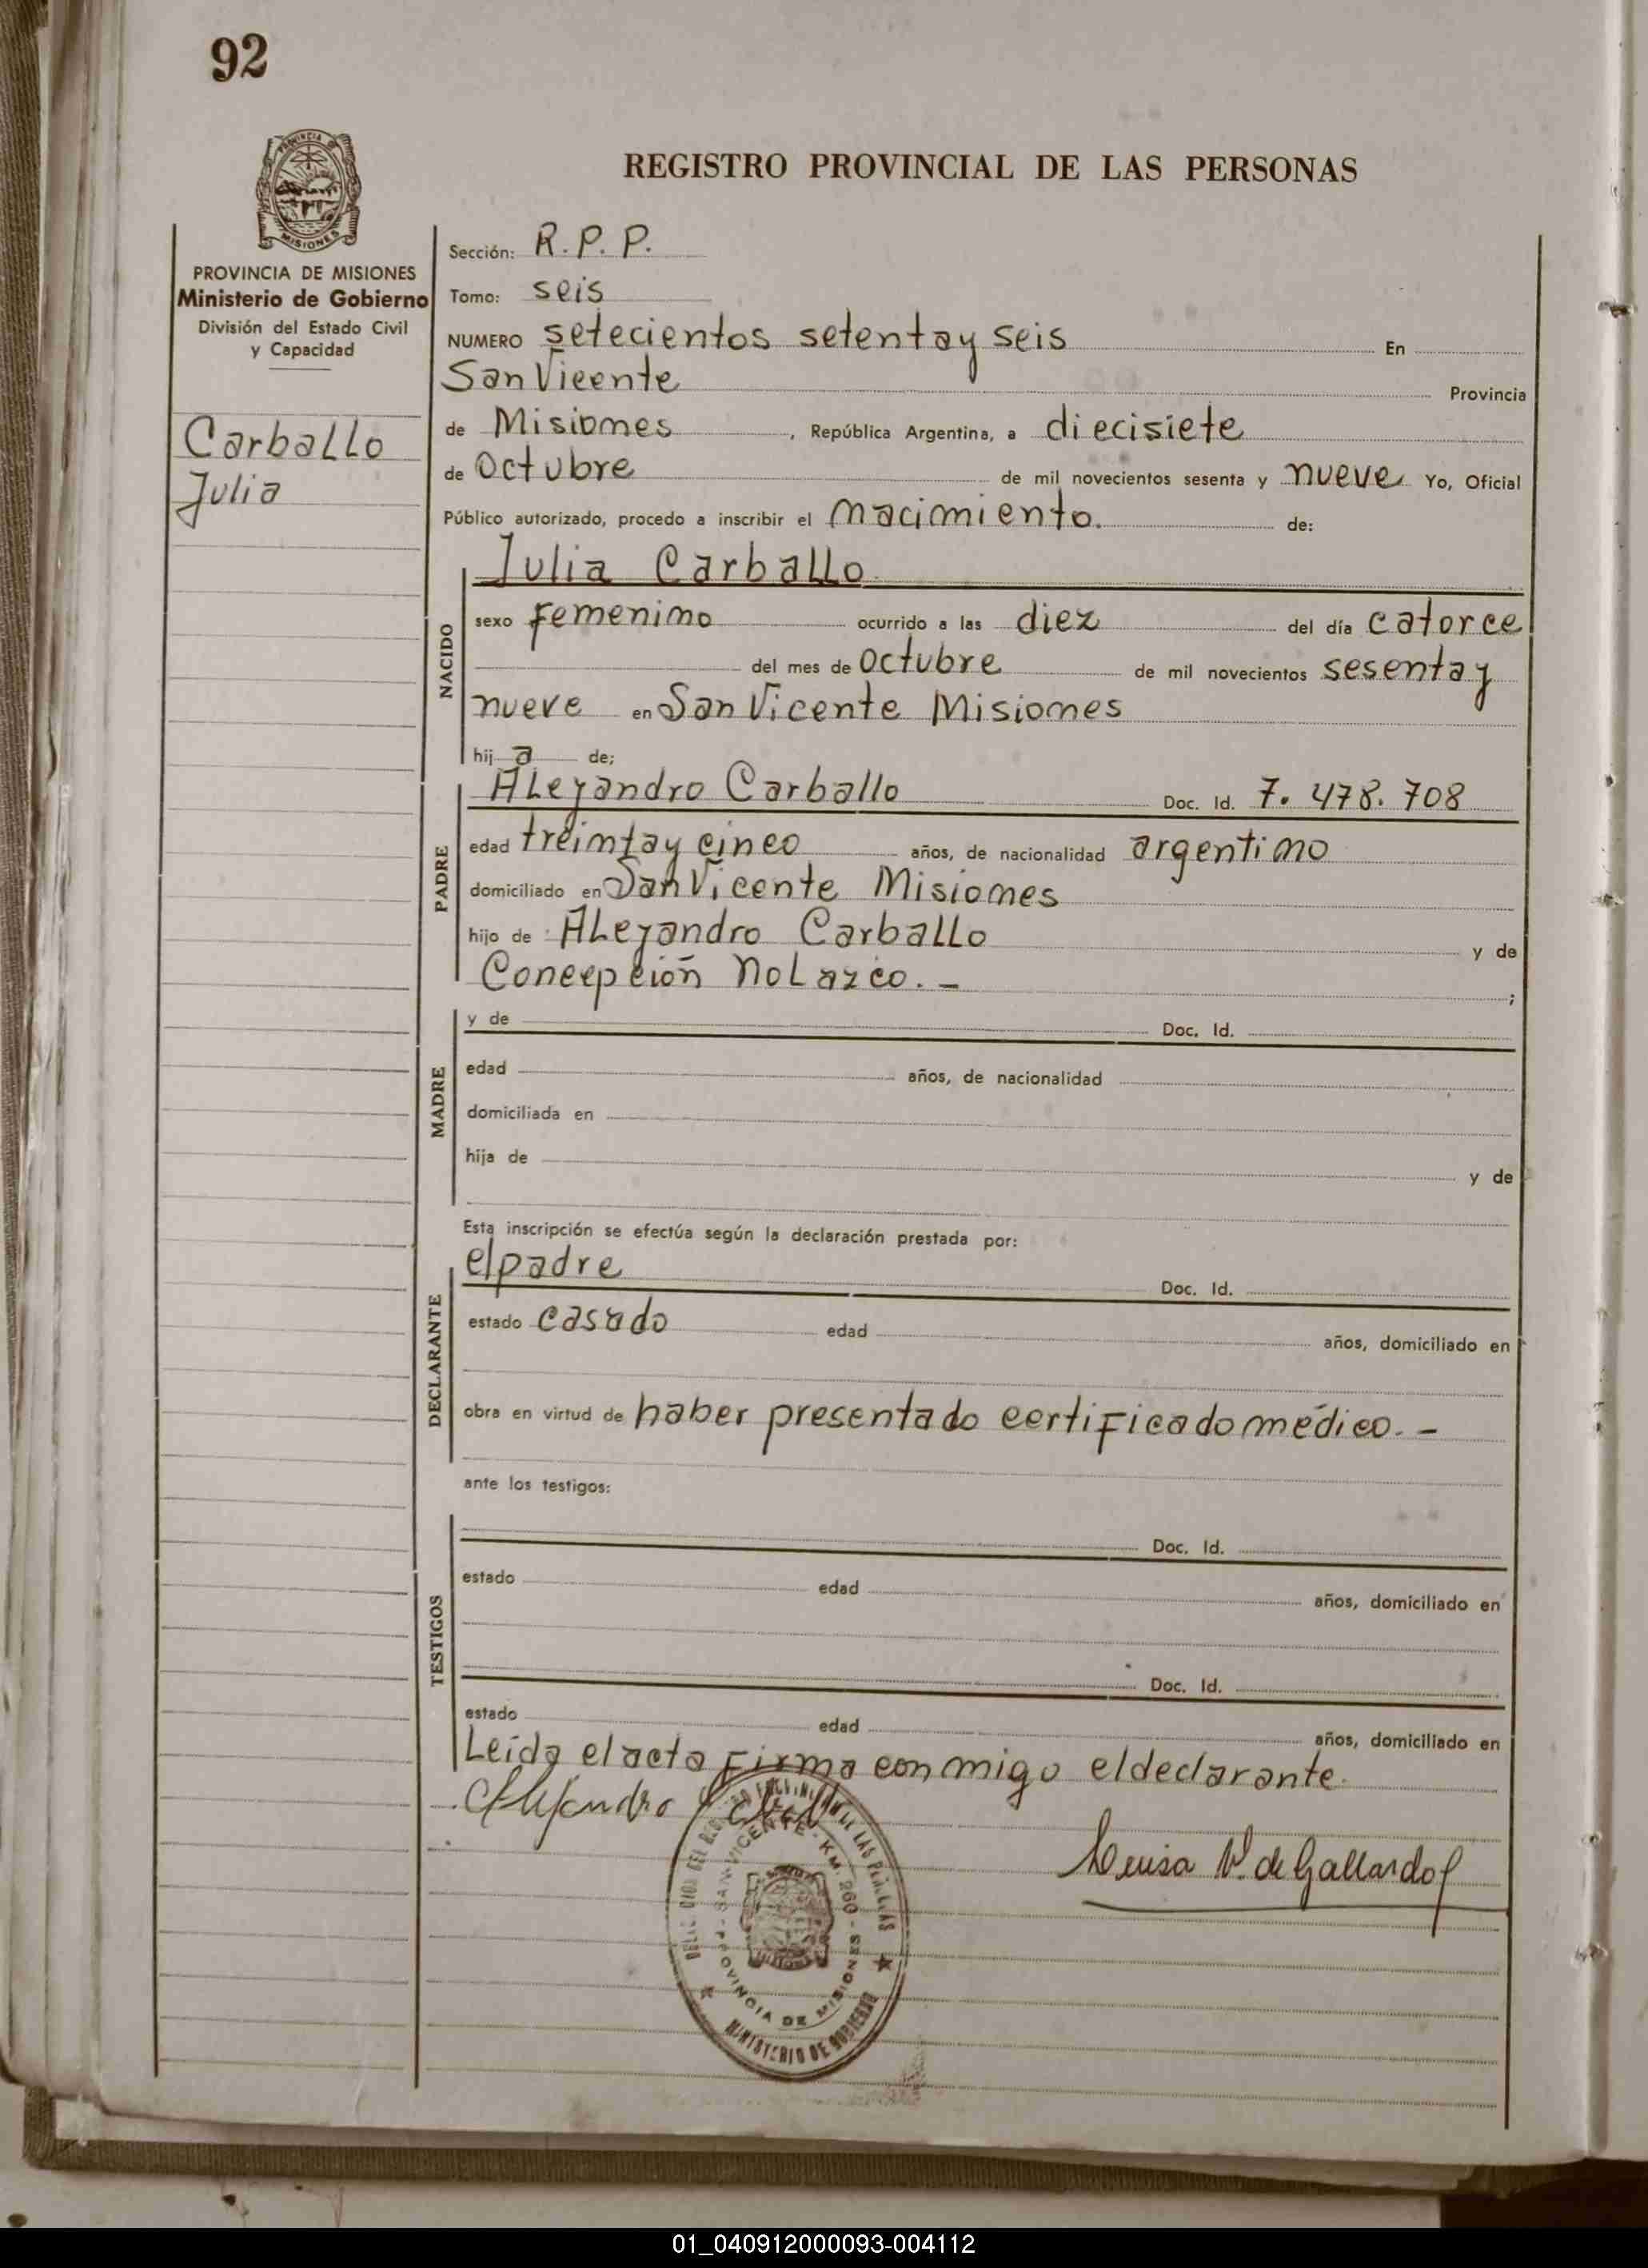 92
PROVINCIA DE
MISIONES
REGISTRO PROVINCIAL DE LAS PERSONAS
PROVINCIA DE MISIONES
Ministerio de Gobierno
División del Estado Civil
y Capacidad
Carballo
Julia
Sección: R. P. P.
Tomo: seis
NUMERO setecientos setenta y seis En
San Vicente Provincia
de Misiones , República Argentina, a diecisiete
de Octubre de mil novecientos sesenta y nueve Yo, Oficial
Público autorizado, procedo a inscribir el nacimiento. de:
Julia Carballo
NACIDO
sexo femenino ocurrido a las diez del día catorce
del mes de octubre de mil novecientos sesenta y
nueve en San Vicente Misiones
hij a de;
PADRE
Alejandro Carballo Doc. Id. 7. 478. 708
edad treinta y cinco años, de nacionalidad argentino
domiciliado en San Vicente Misiones
hijo de Alejandro Carballo y de
Concepción Nolazco. - ;
MADRE
y de Doc. Id.
edad años, de nacionalidad
domiciliada en
hija de y de
Esta inscripción se efectúa según la declaración prestada por:
DECLARANTE
el padre Doc. Id.
estado casado edad años, domiciliado en
obra en virtud de haber presentado certificado médico. -
ante los testigos:
TESTIGOS
Doc. Id.
estado edad años, domiciliado en
Doc. Id.
estado edad años, domiciliado en
Leída el acta firma conmigo el declarante.
Alejandro
Luisa V. de Gallardo
SAN VICENTE - KM. 260 -
PROVINCIA DE MISIONES
MINISTERIO DE GOBIERNO
01_040912000093-004112